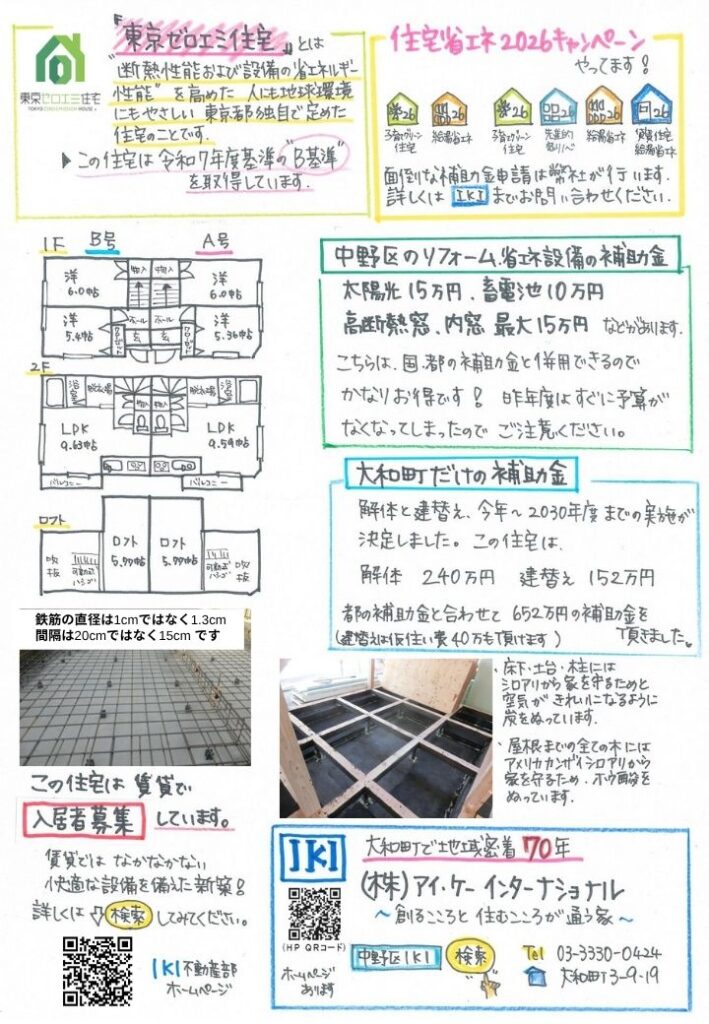 東京ゼロエミ住宅
TOKYO ZERO EMISSION HOUSE
『東京ゼロエミ住宅』とは
"断熱性能および設備の省エネルギー
性能"を高めた人にも地球環境
にもやさしい東京都独自で定めた
住宅のことです。
▶この住宅は令和7年度基準の"B基準"
を取得しています。
住宅省エネ2026キャンペーン
やってます!
26 26 26 26 26 26
子育グリーン住宅
給湯省エネ
子育グリーン住宅
先進的窓リノベ
給湯省エネ
賃貸住宅給湯省エネ
面倒な補助金申請は弊社が行います。
詳しくは IKI までお問い合わせください。
1F B号 A号
洋 6.0帖
物入 物入
洋 6.0帖
洋 5.4帖
ホール ホール
玄 玄
洋 5.36帖
2F
浴室 脱衣場 物入 物入 脱衣場 浴室
LDK 9.63帖
LDK 9.54帖
バルコニー バルコニー
ロフト
吹抜
可動式ハシゴ
ロフト 5.77帖
ロフト 5.77帖
可動式ハシゴ
吹抜
中野区のリフォーム、省エネ設備の補助金
太陽光15万円、蓄電池10万円
高断熱窓、内窓 最大15万円 などがあります。
こちらは、国、都の補助金と併用できるので
かなりお得です! 昨年度はすぐに予算が
なくなってしまったので ご注意ください。
大和町だけの補助金
解体と建替え、今年～2030年度までの実施が
決定しました。この住宅は、
解体 240万円 建替え 152万円
都の補助金と合わせて652万円の補助金を
(建替えは仮住い費40万も頂けます) 頂きました。
鉄筋の直径は1cmではなく1.3cm
間隔は20cmではなく15cm です
・床下・土台・柱には
シロアリから家を守るためと
空気がきれいになるように
炭をぬっています。
・屋根までの全ての木には
アメリカカンザイシロアリから
家を守るため、ホウ酸を
ぬっています。
この住宅は賃貸で
入居者募集しています。
賃貸ではなかなかない
快適な設備を備えた新築!
詳しくは 検索 してみてください。
IKI不動産部
ホームページ
IKI
大和町で地域密着70年
(株)アイ・ケーインターナショナル
～創るこころと住むこころが通う家～
(HP QRコード)
ホームページあります
中野区IKI 検索
Tel 03-3330-0424
大和町3-9-19